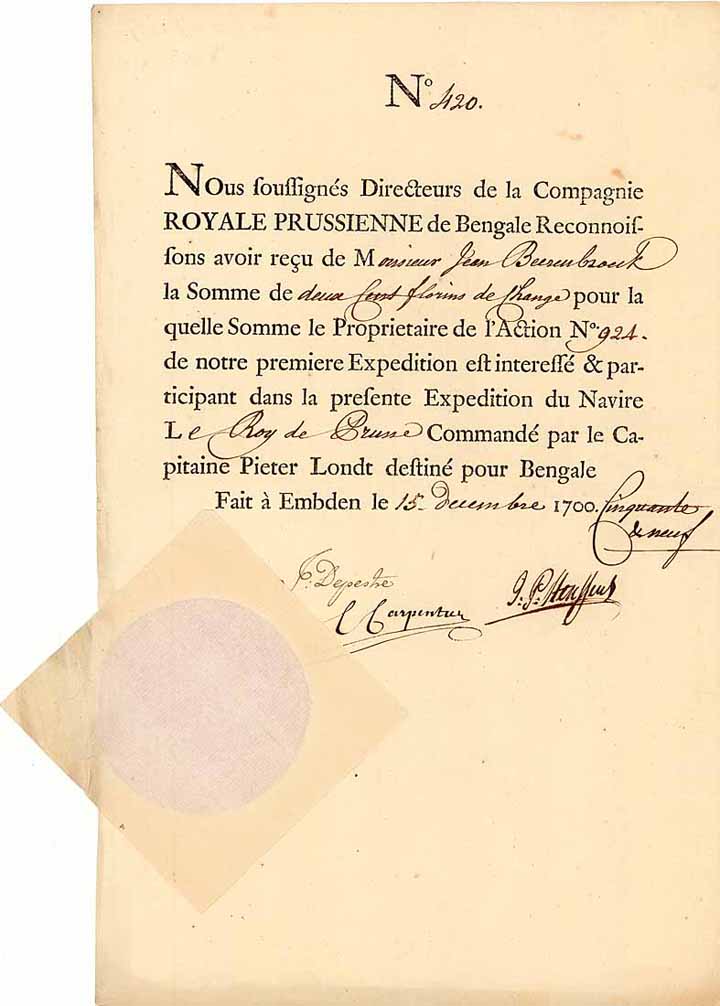 N° 420.
NOus souſſignés Directeurs de la Compagnie
ROYALE PRUSSIENNE de Bengale Reconnoiſ-
ſons avoir reçu de Monsieur Jean Beerenbrouk
la Somme de deux Cent florins de Change pour la
quelle Somme le Proprietaire de l'Action N°. 924.
de notre premiere Expedition eſt intereſſé & par-
ticipant dans la preſente Expedition du Navire
Le Roy de Prusse Commandé par le Ca-
pitaine Pieter Londt deſtiné pour Bengale
Fait à Embden le 15 Decembre 1700. Cinquante
& neuf
P: Depestre
C Carpentier